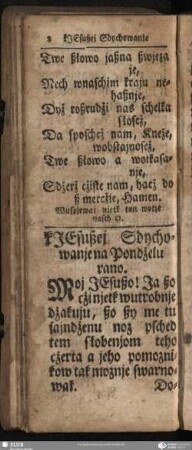 2 KJEsußej Sdychowanie
Twe ßlowo jaßna ßwjeza
je,
Nech wnaschim kraju ne-
haßnje,
Dyż roßrudżi nas schelka
sloscż,
Da sposchż nam, Kneże,
wobstajnoscż,
Twe ßlowo a wotkasa-
nje,
Sdżerż cżiste nam, hacż do
ß mercżie, Hamen.
KJEsußej Sdychy-
wanje na Pondżelu
rano.
Moj JEsußo! Ja ßo
cżi njetk wutrobnje
dżakuju, ßo ßy me tu
sajndżenu noz psched
tem ßlobenjom teho
cżerta a jeho pomozni-
kow tak moznje swarno-
wak. Do-